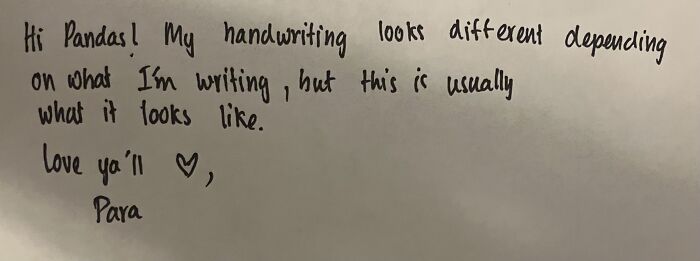 Hi Pandas! My handwriting looks different depending
on what I'm writing, but this is usually
what it looks like.
Love ya'll ♡,
Para